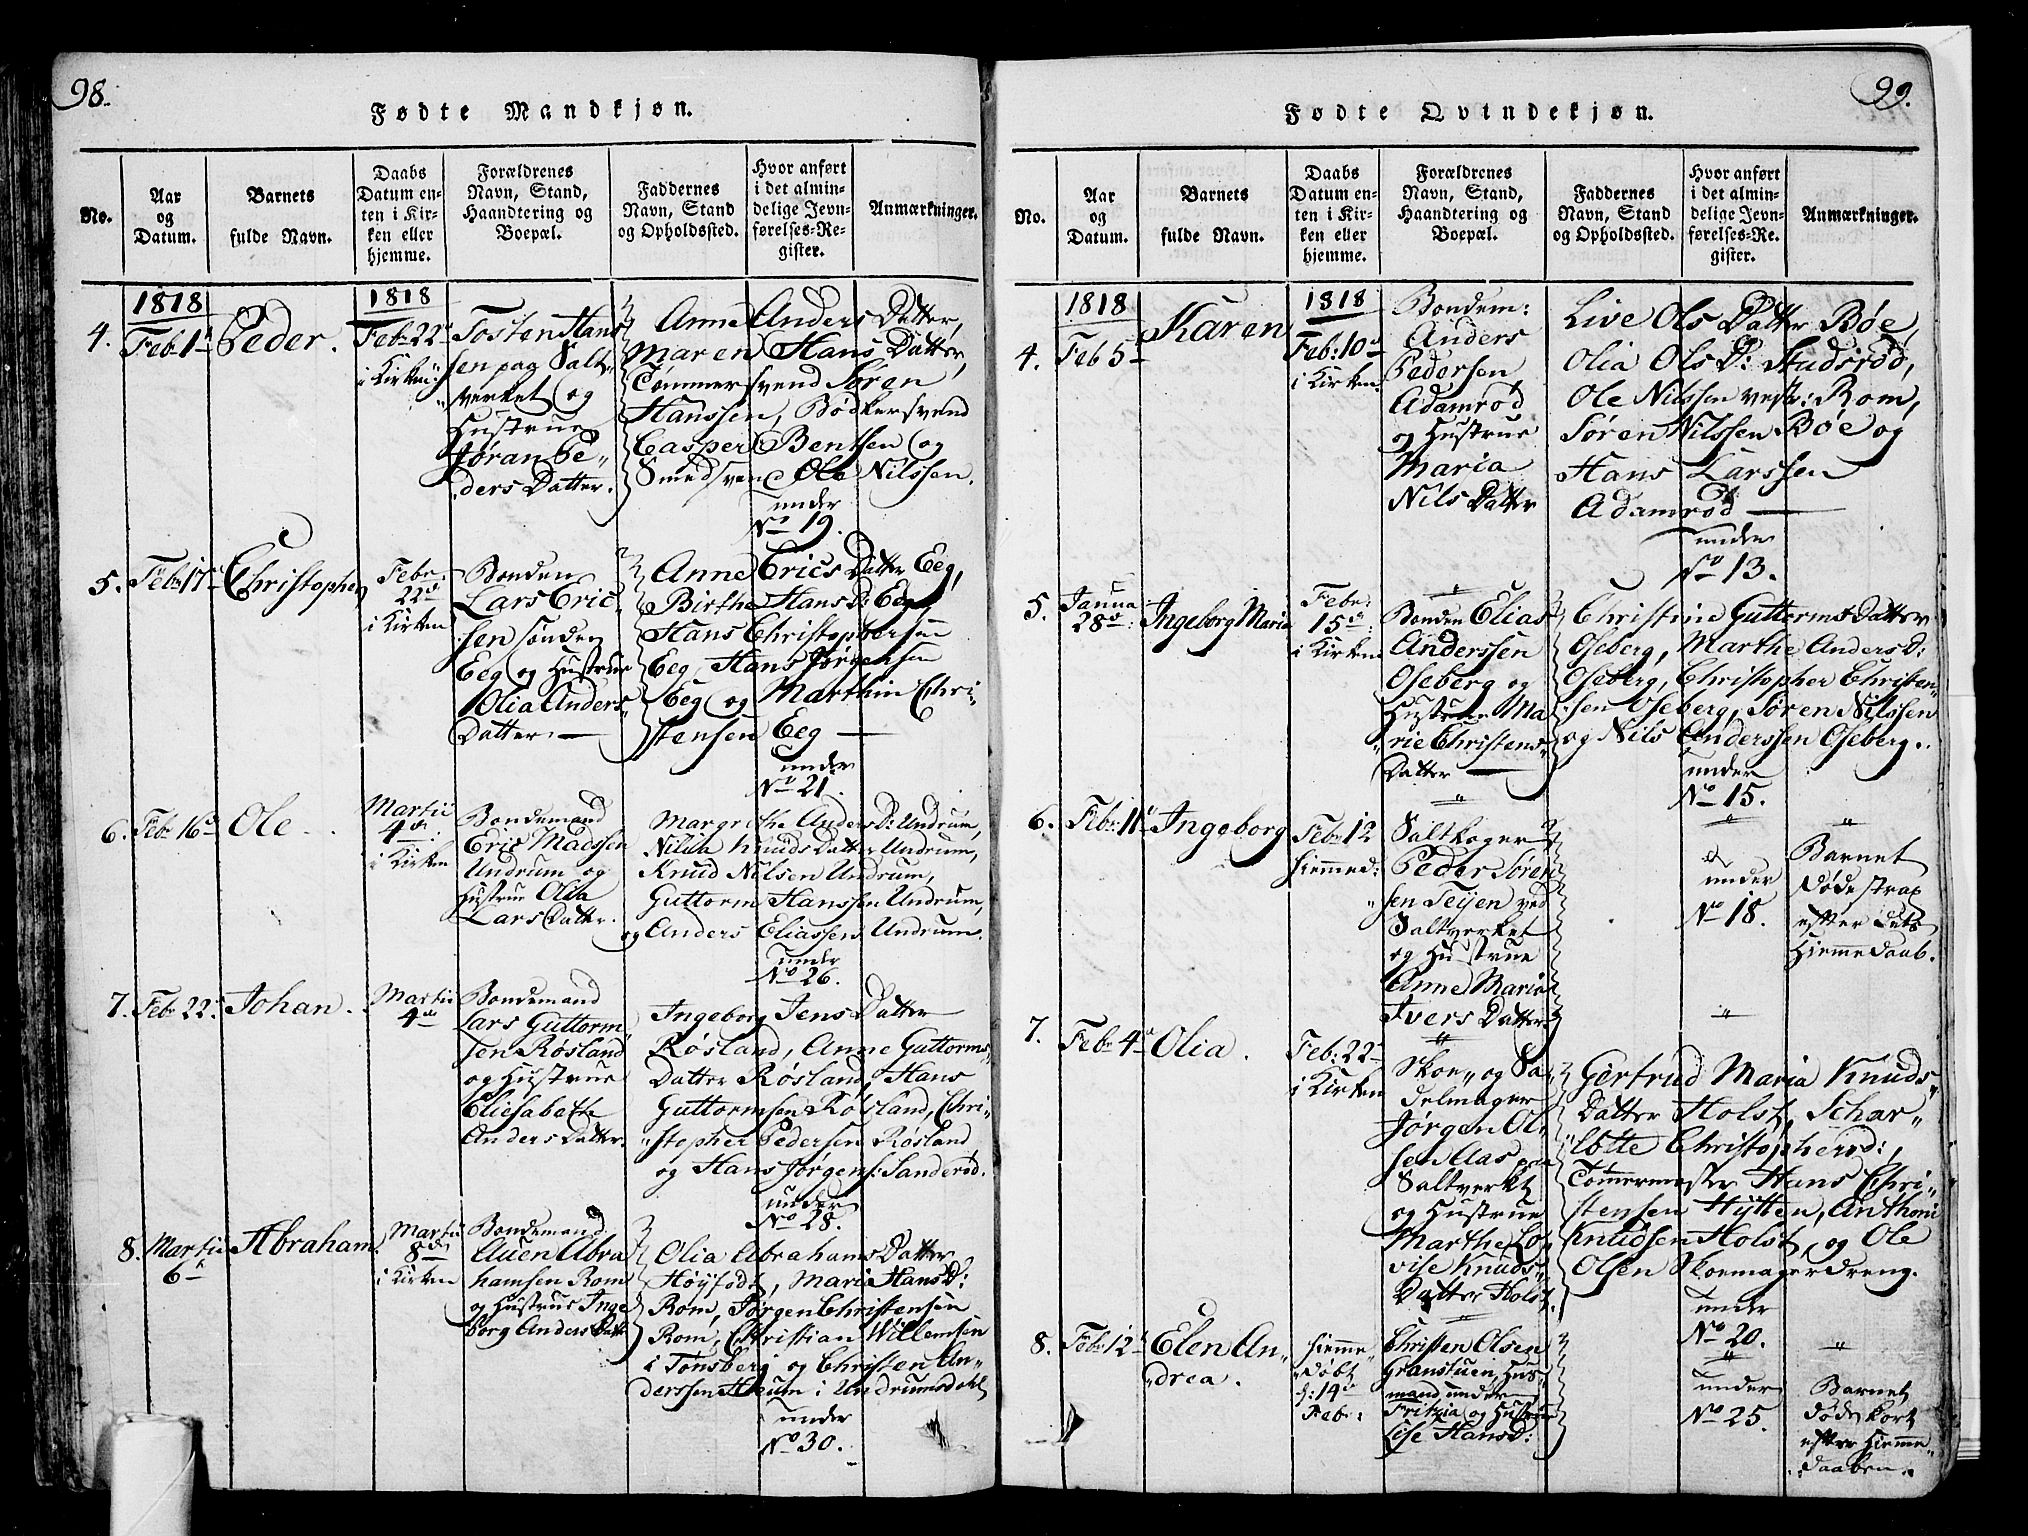 98.
Fødte Mandkjøn.
No.
Aar
og
Datum.
Barnets
fulde Navn.
Daabs
Datum en-
ten i Kir-
ken eller
hjemme.
Forældrenes
Navn, Stand,
Haandtering og
Boepæl.
Faddernes
Navn, Stand
og Opholdssted.
Hvor anført
i det almin-
delige Jevn-
førelses-Re-
gister.
Anmærkninger.
1818
4.
Feb: 1d
Peder.
1818
Feb: 22d
i Kirken
Tosten Hans
sen paa Salt
verket og
Hustrue
Jøran Pe-
ders Datter.
Anne Anders Datter,
Maren Hans Datter,
Tømmersvend Søren
Hanssen, Bødkersvend
Casper Bentsen og
Smedsvend Ole Nilssen.
under
No 19.
5.
Feb: 17d
Christopher
Febr:
22d
i Kirken
Bonden
Lars Eric
sen sønden
Eeg og Hustrue
Olia Anders
Datter. —
Anne Erics Datter Eeg,
Birthe Hans D: Eeg,
Hans Christophersen
Eeg, Hans Jørgensen
Eeg og Marthin Chri
stensen Eeg —
under
No 21.
6.
Feb: 16d
Ole
Martii
4d
i Kirken
Bondemand
Eric Madssen
Undrum og
Hustrue Olia
Lars Datter.
Margrethe Anders D: Undrum,
Nilia Knuds Datter Undrum,
Knud Nilsen Undrum,
Guttorm Hanssen Undrum,
og Anders Eliassen Undrum.
under
No 26.
7.
Feb: 22.
Johan.
Martii
4de
Bondemand
Lars Guttorm
sen Røsland
og Hustrue
Eliesabethe
Anders Datter.
Ingeborg Jens Datter
Røsland, Anne Guttorms
Datter Røsland, Hans
Guttormsen Røsland, Chri
stopher Pedersen Røsland
og Hans Jørgens: Sanderød.
under
No 28.
8.
Martii
6te
Abraham.
Martii
8de
i Kirken
Bondemand
Auen Abra
hamsen Rom
og Hustrue Inge
borg Anders Datter
Olia Abrahams Datter
Høyfødt, Maria Hans D:
Rom, Jørgen Christensen
Rom, Christian Willemsen
i Tønsberg og Christen An-
derssen Heum i Undrumsdahl
under
No 30.
99.
Fødte Qvindekjøn.
No.
Aar
og
Datum.
Barnets
fulde Navn.
Daabs
Datum en-
ten i Kir-
ken eller
hjemme.
Forældrenes
Navn, Stand,
Haandtering og
Boepæl.
Faddernes
Navn, Stand
og Opholdssted.
Hvor anført
i det almin-
delige Jevn-
førelses-Re-
gister.
Anmærkninger.
1818
4.
Feb 5
Karen
1818
Feb: 10d
i Kirken
Bondem:
Anders
Pedersen
Adamrød
og Hustrue
Maria
Nils Datter
Live Ols Datter Bøe,
Olia Ols D: Studsrød,
Ole Nilssen vestr: Rom,
Søren Nilssen Bøe og
Hans Larssen
Adamrød —
under
No 13.
5.
Janua
28d
Ingeborg Maria
Febr:
15d
i Kirken
Bonden Elias
Anderssen
Oseberg og
Hustrue Ma
rie Christens
Datter —
Christine Guttorms Datter
Oseberg, Marthe Anders D:
Oseberg, Christopher Christen
sen Oseberg, Søren Nilssen
og Nils Anderssen Oseberg.
under
No 15.
6.
Feb: 11d
Ingeborg
Feb: 12
hiemmed:
Saltkoger
Peder Søren
sen Teijen ved
Saltverket
og Hustrue
Anne Maria
Ivers Datter
under
No 18.
Barnet
døde strax
efter dets
Hiemmedaab.
7.
Feb: 4d
Olia.
Feb: 22
i Kirken
Skoe- og Sa
delmager
Jørgen Ol-
sen Aas paa
Saltverket
og Hustrue
Marthe Lo
vise Knuds
Datter Holst.
Gertrud Maria Knuds
Datter Holst, Schar-
lotte Christophersd:,
Tømmermester Hans Chri
stensen Hytten, Anthoni
Knudsen Holst, og Ole
Olsen Skoemagerdreng.
under
No 20.
8.
Feb: 12d
Elen An-
drea.
hiemme
døbt
d: 14d
Febr:
Christen Olsen
Granstuen, Hus
mand under
Fritzia og Hustrue
Lise Hansd:
under
No 25.
Barnet
døde kort
efter Hiemme
daaben.